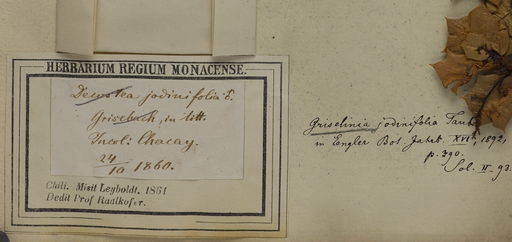 HERBARIUM REGIUM MONACENSE.
Decostea jodinifolia
Grisebach, in litt.
Incoli: Chacay.
24/10 1860.
Chili. Misit Leyboldt. 1861
Dedit Prof Radlkofer.
Griselinia jodinifolia Taub.
in Engler Bot. Jahrb. XVI, 1892,
p. 390.
Sol. II-93.